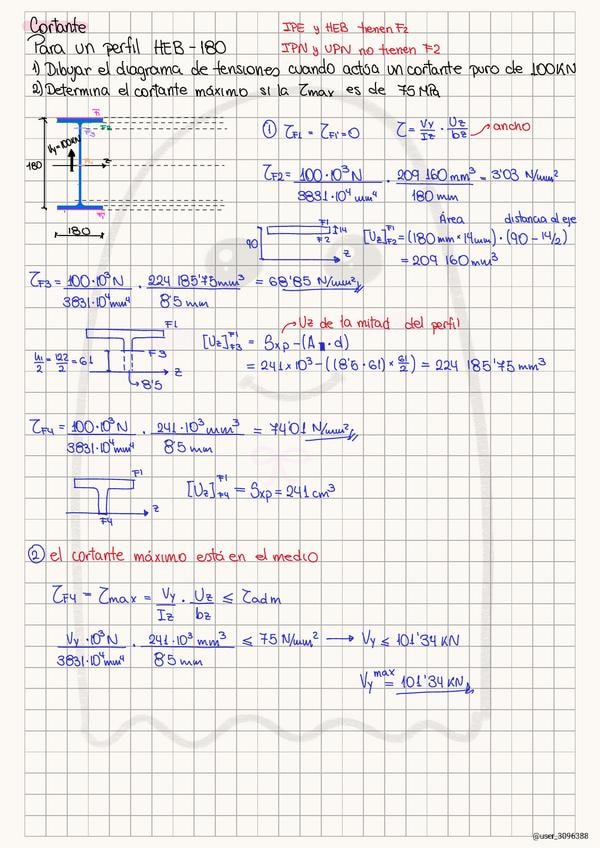 Cortante
IPE y HEB tienen F2
Para un perfil HEB-180
IPN y UPN no tienen F2
1) Dibujar el diagrama de tensiones cuando actúa un cortante puro de 100KN
2) Determina el cortante máximo si la τmax es de 75 MPa
F1
F2
F3
Vy=100KN
180
F4
z
F1
180
① τF1 = τF1' = 0 τ = Vy/Iz · Uz/bz → ancho
τF2 = 100·10³N / 3831·10⁴ mm⁴ · 209 160 mm³ / 180 mm = 3'03 N/mm²
Área distancia al eje
F1
14
90
F2
z
[Uz]F1F2 = (180mm × 14mm) · (90 - 14/2)
= 209 160 mm³
τF3 = 100·10³N / 3831·10⁴mm⁴ · 224 185'75mm³ / 8'5 mm = 68'85 N/mm²
Uz de la mitad del perfil
F1
F3
h1/2 = 122/2 = 61
z
8'5
[Uz]F1F3 = Sxp - (A · d)
= 241×10³ - ((8'5 · 61) × 61/2) = 224 185'75 mm³
τF4 = 100·10³N / 3831·10⁴ mm⁴ · 241·10³ mm³ / 8'5 mm = 74'01 N/mm²
F1
z
F4
[Uz]F1F4 = Sxp = 241 cm³
② el cortante máximo está en el medio
τF4 = τmax = Vy/Iz · Uz/bz ≤ τadm
Vy·10³N / 3831·10⁴mm⁴ · 241·10³ mm³ / 8'5 mm ≤ 75 N/mm² → Vy ≤ 101'34 KN
Vy max = 101'34 KN
@user_3096388